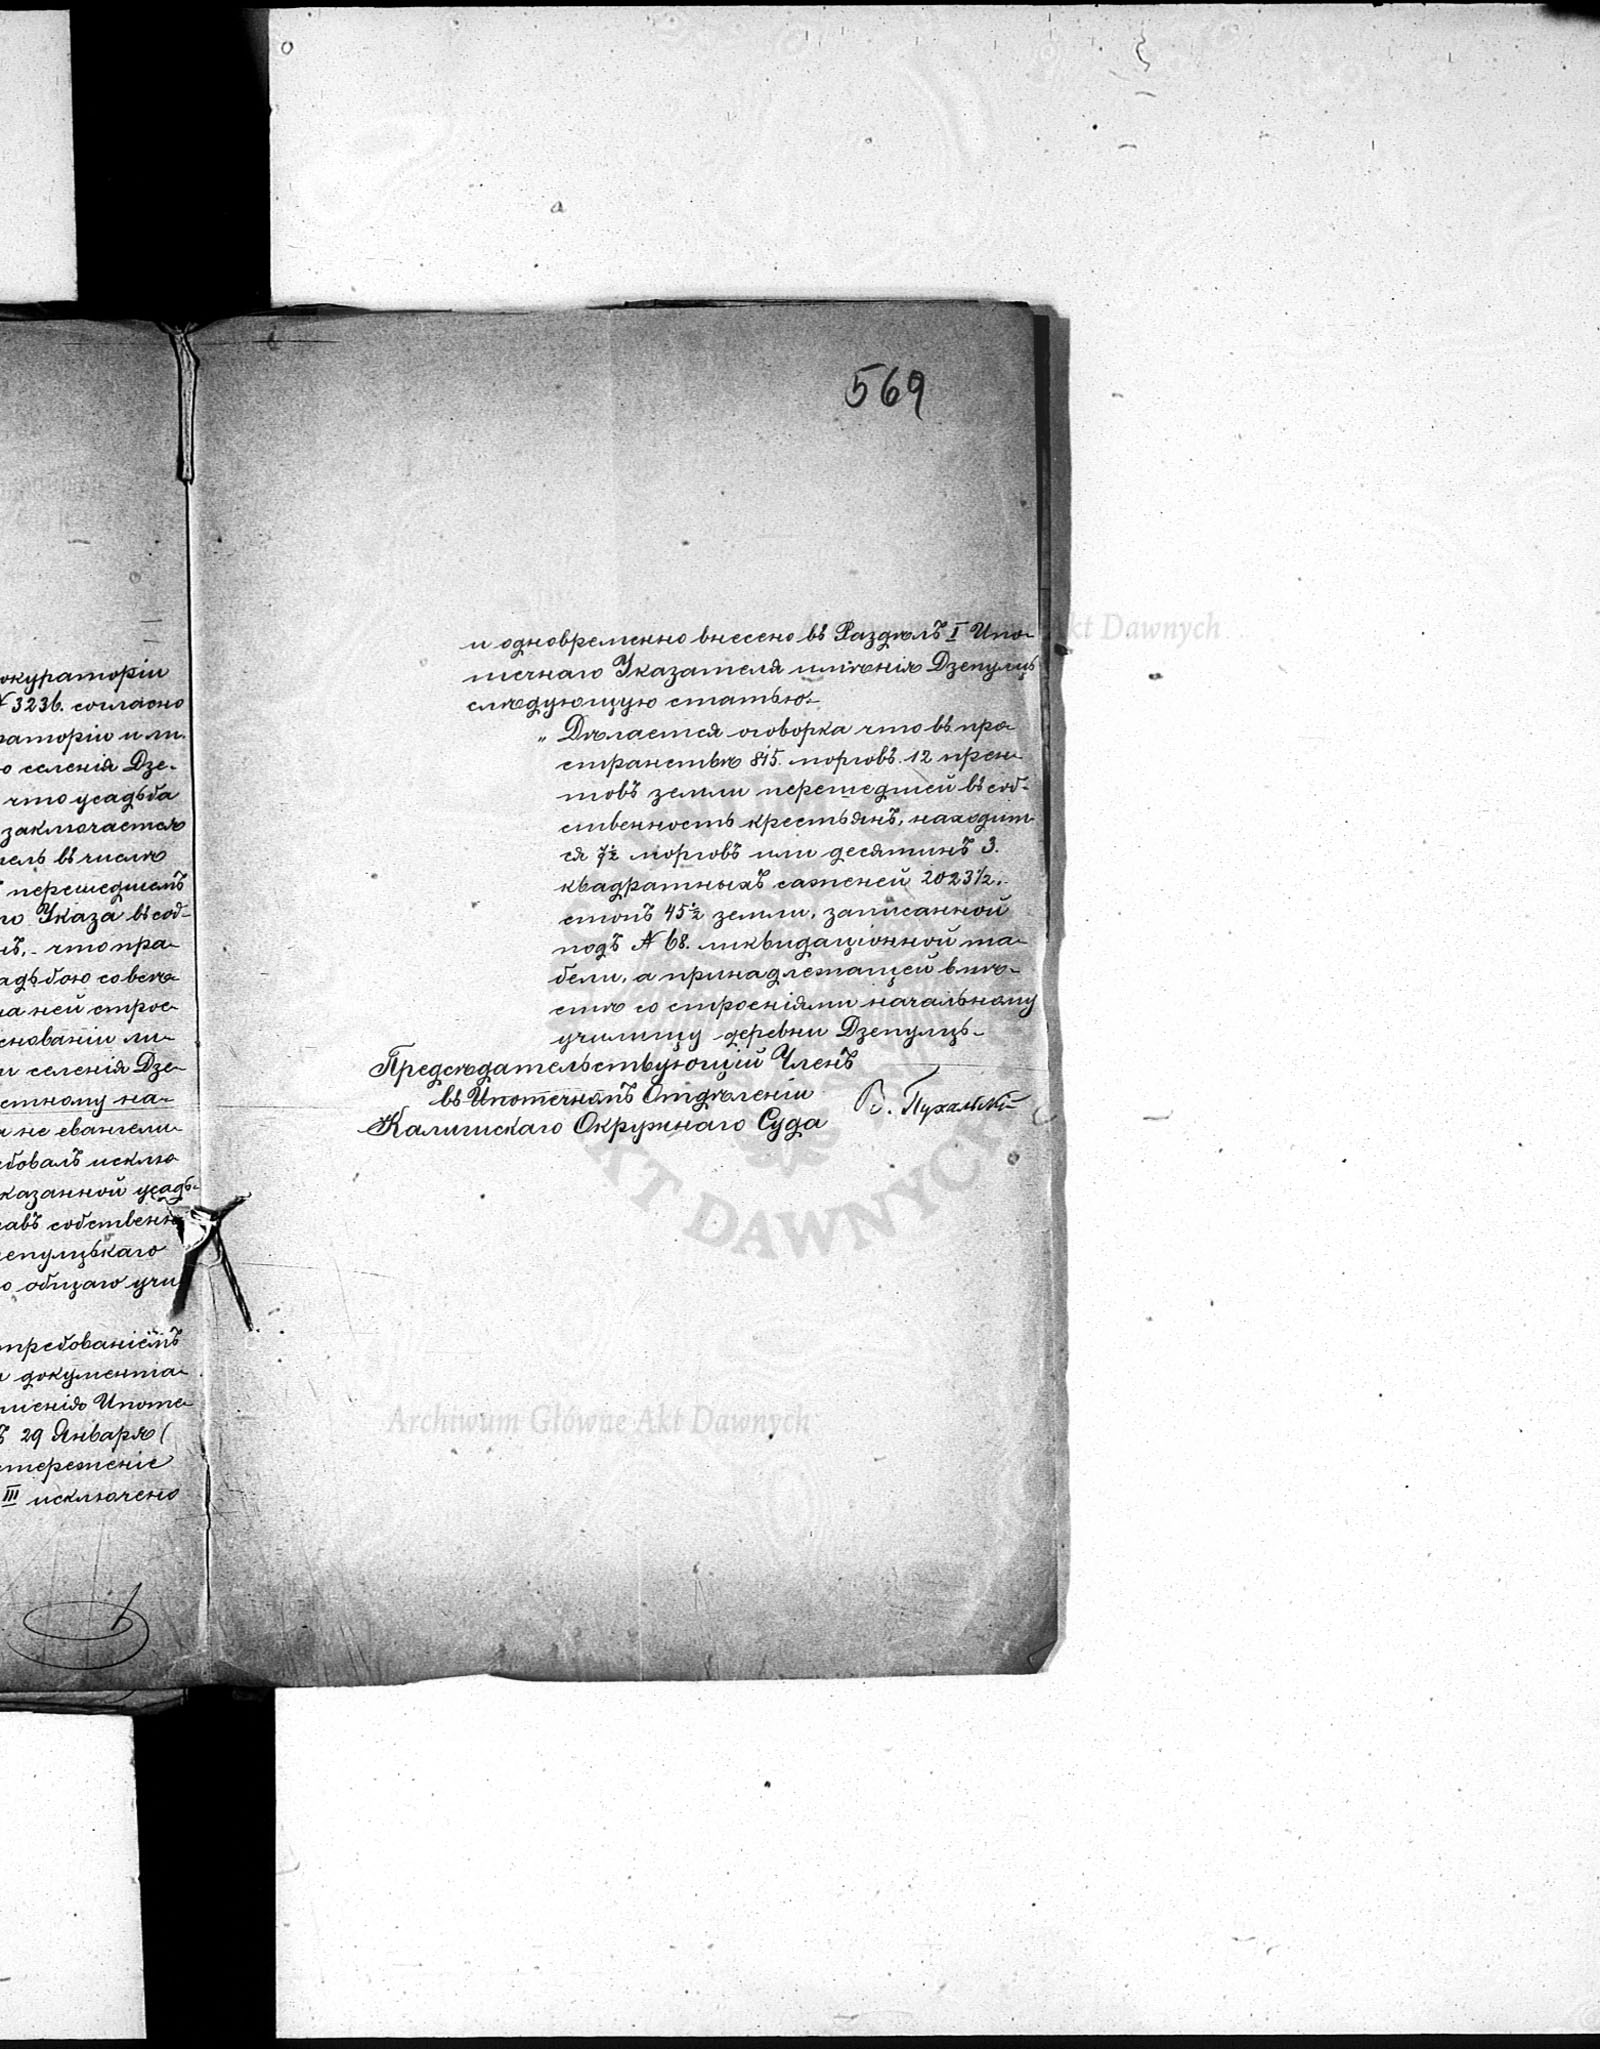 окураторіи
№ 3236. согласно
раторіи и ли-
о селенія Дзе-
что усадьба
заключается
тель въ числѣ
перешедшемъ
го Указа въ соб-
нъ,- что пра-
адьбою совмѣ-
на ней строе-
снованіи ли-
и селенія Дзе-
стному на-
а не евангели-
ебовалъ исклю
казанной усадь-
равъ собственно
зепулцькаго
о общаго учи
требованіемъ
и документа-
шенія Ипоте-
ъ 29 Января (
стереженіе
III исключено
569
и одновременно внесено въ Раздѣлъ I Ипо-
течнаго Указателя имѣнія Дзепулць
слѣдующую статью:
„ Дѣлается оговорка что въ про-
странствѣ 815. морговъ. 12 прен-
товъ земли перешедшей въ соб-
ственность крестьянъ, находит-
ся 7½ морговъ или десятинъ 3.
квадратныхъ саженей 2023½.
стопъ 45½ земли, записанной
подъ № 68. ликвидаціонной та-
бели, а принадлежащей вмѣ-
стѣ со строеніями начальному
училищу деревни Дзепулць-
Предсѣдательствующій Членъ
въ Ипотечномъ Отдѣленіи
Калишскаго Окружнаго Суда
В. Пухальскій
Archiwum Główne Akt Dawnych
kt Dawnych
KT DAWNYCH